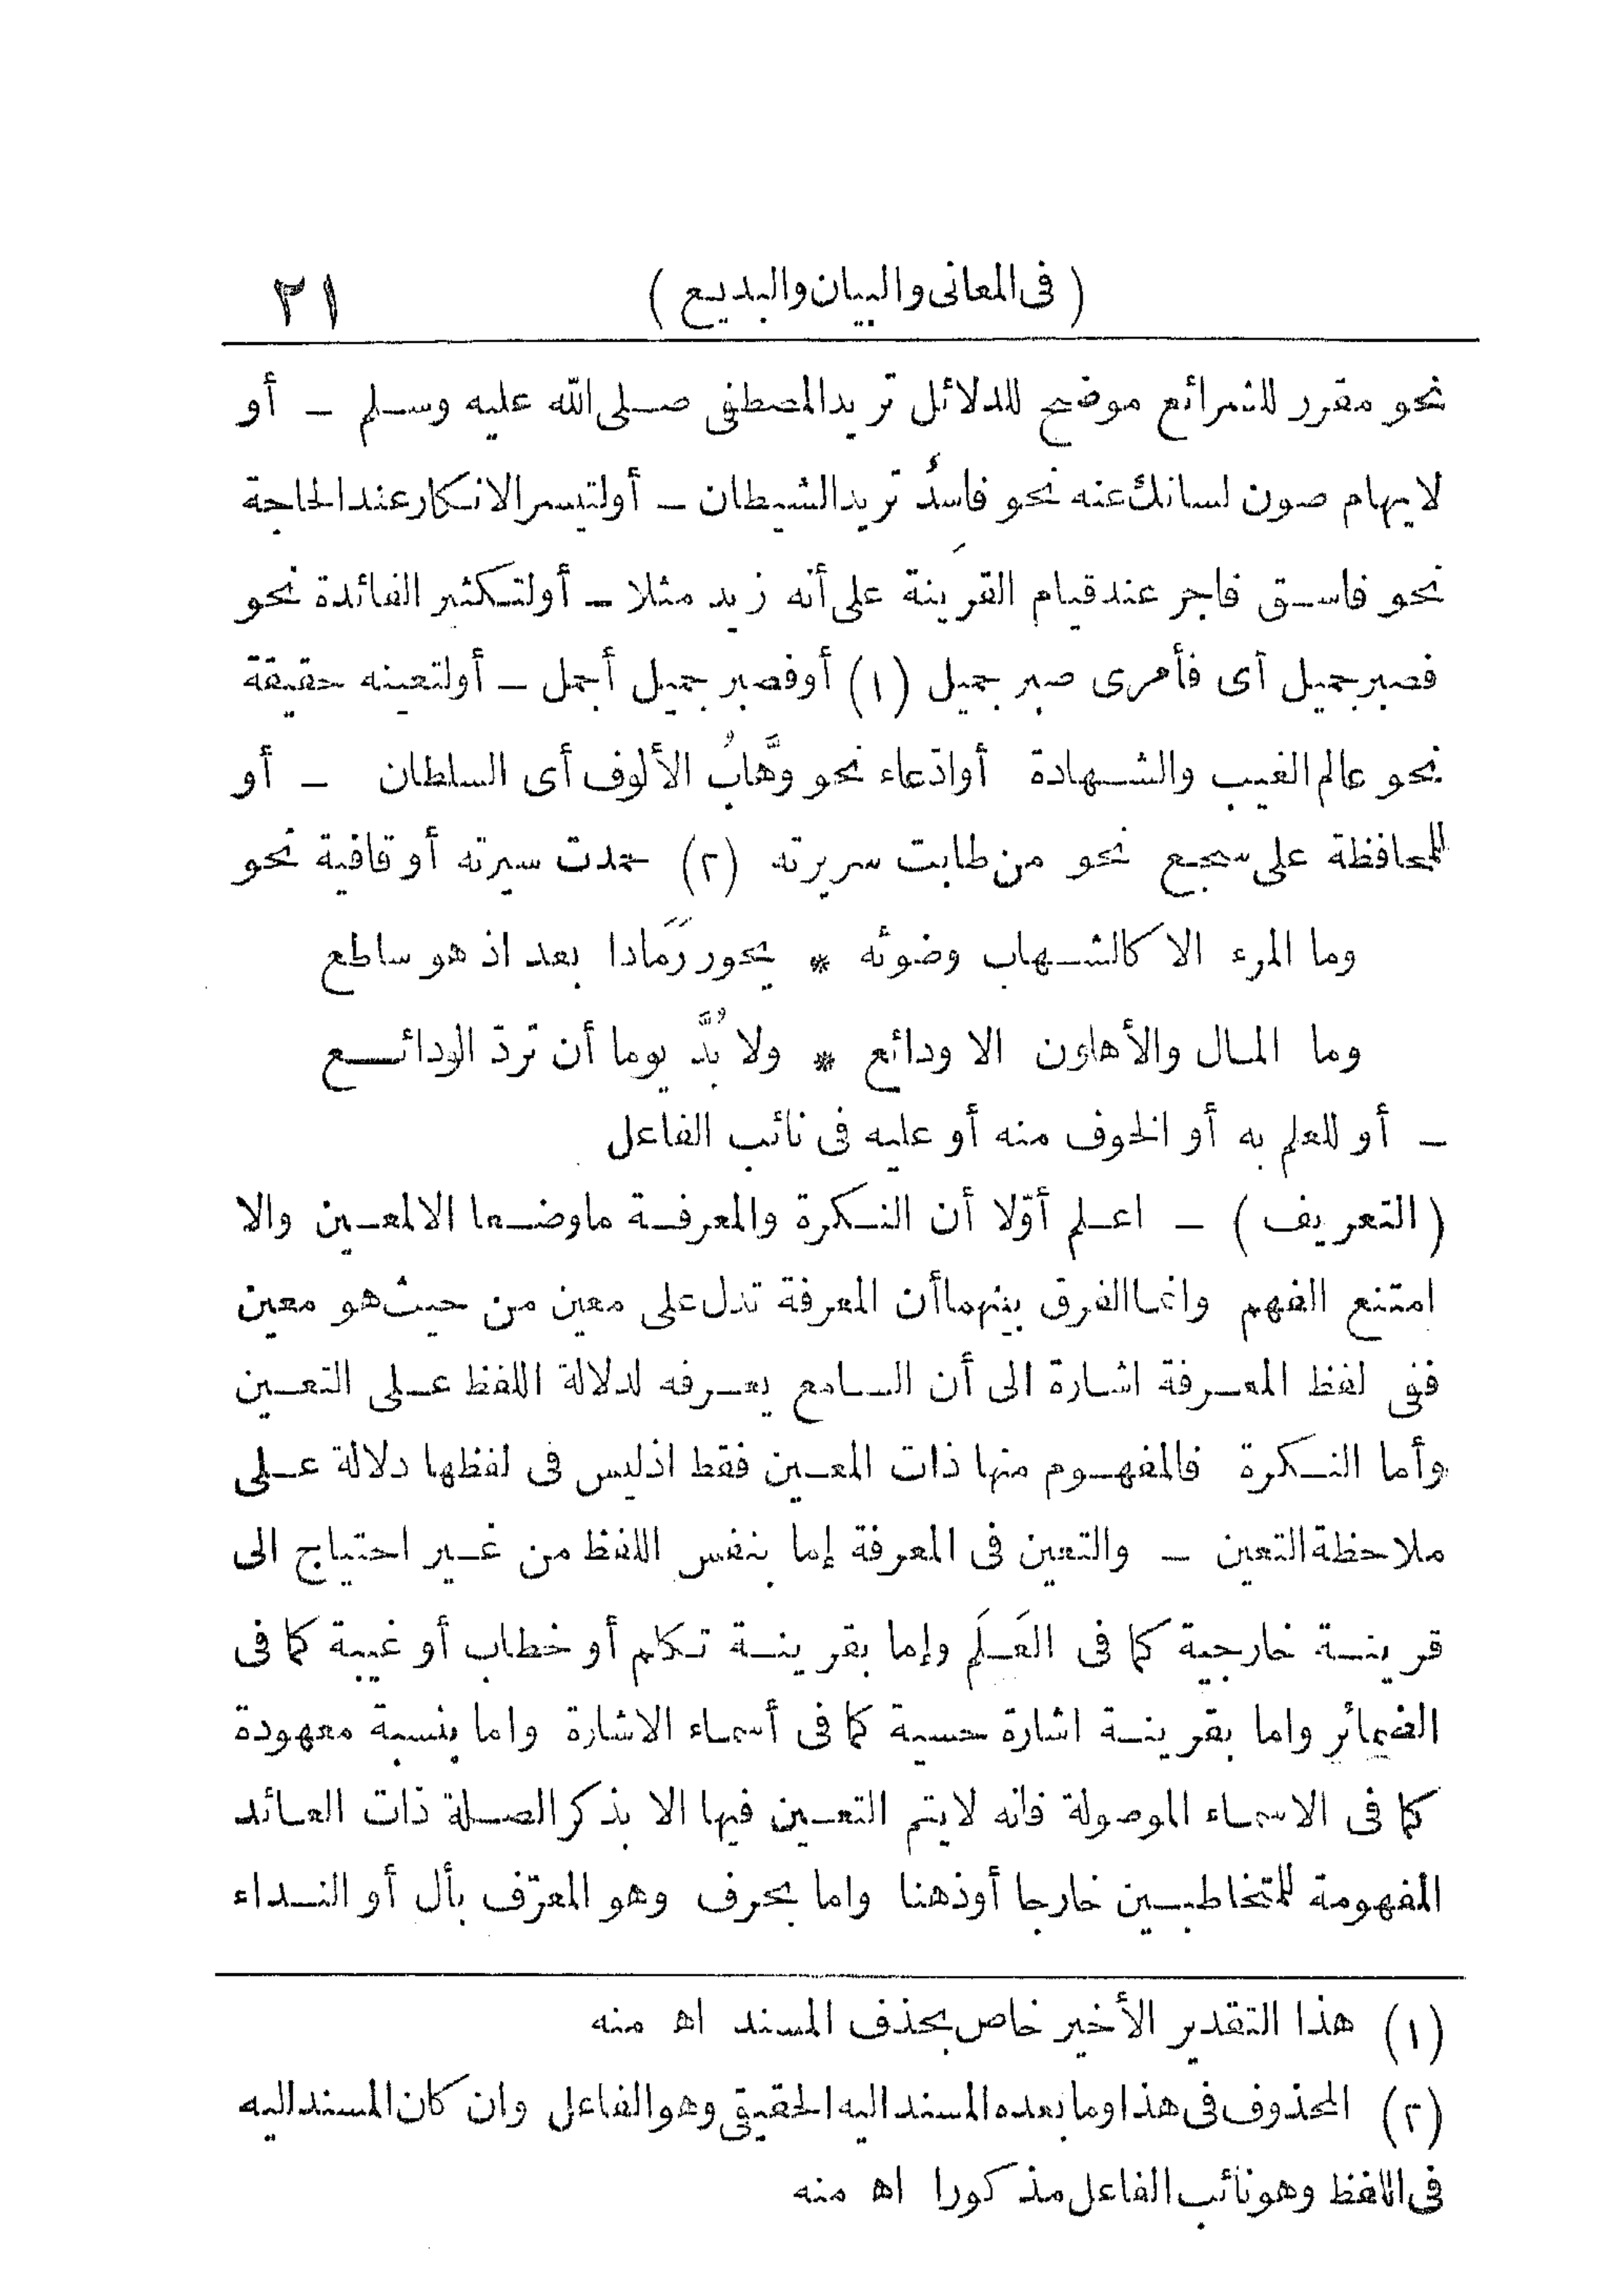 ( فى المعانى والبيان والبديع ) ٢١
نحو مقرر للشرائع موضح للدلائل تريد المصطفى صلى الله عليه وسلم – أو
لايهام صون لسانك عنه نحو فاسدٌ تريد الشيطان – أو لتيسر الانكار عند الحاجة
نحو فاسق فاجر عند قيام القرينة على أنه زيد مثلا – أو لتكثير الفائدة نحو
فصبر جميل أى فأمرى صبر جميل (١) أو فصبر جميل أجمل – أو لتعينه حقيقة
نحو عالم الغيب والشهادة أو ادّعاء نحو وهَّابُ الألوف أى السلطان – أو
للمحافظة على سجع نحو من طابت سريرته (٢) حمدت سيرته أو قافية نحو
وما المرء الا كالشهاب وضوئه * يحور رَمَادا بعد اذ هو ساطع
وما المال والأهلون الا ودائع * ولا بُدَّ يوما أن تردّ الودائع
– أو للعلم به أو الخوف منه أو عليه فى نائب الفاعل
( التعريف ) – اعلم أوّلا أن النكرة والمعرفة ماوضعا الا لمعين والا
امتنع الفهم وانما الفرق بينهما أن المعرفة تدل على معين من حيث هو معين
ففى لفظ المعرفة اشارة الى أن السامع يعرفه لدلالة اللفظ على التعين
وأما النكرة فالمفهوم منها ذات المعين فقط اذ ليس فى لفظها دلالة على
ملاحظة التعين – والتعين فى المعرفة إما بنفس اللفظ من غير احتياج الى
قرينة خارجية كما فى العَلَم وإما بقرينة تكلم أو خطاب أو غيبة كما فى
الضمائر واما بقرينة اشارة حسية كما فى أسماء الاشارة واما بنسبة معهودة
كما فى الاسماء الموصولة فانه لايتم التعين فيها الا بذكر الصلة ذات العائد
المفهومة للمتخاطبين خارجا أوذهنا واما بحرف وهو المعرّف بأل أو النداء
(١) هذا التقدير الأخير خاص بحذف المسند اه منه
(٢) المحذوف فى هذا وما بعده المسند اليه الحقيقى وهو الفاعل وان كان المسند اليه
فى اللفظ وهو نائب الفاعل مذكورا اه منه